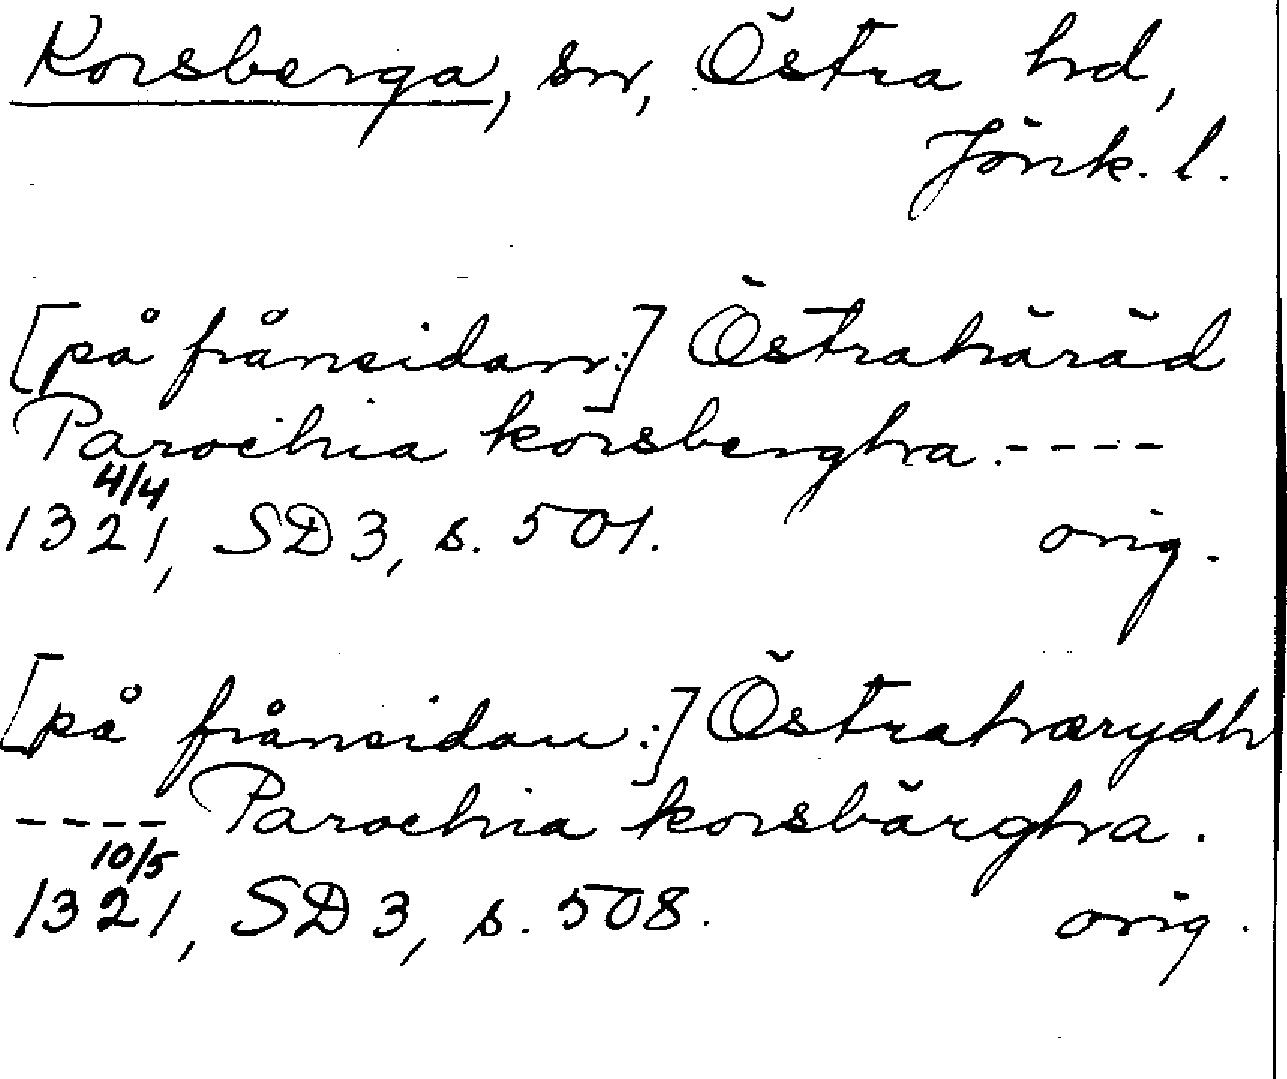 Korsberga, sn, Östra hd,
Jönk. l.
[på frånsidan:] Östrahäräd
Parochia korsbergha.----
4/4
1321, SD 3, s. 501. orig.
[på frånsidan:] Östrahærydh
---- Parochia korsbärgha.
10/5
1321, SD 3, s. 508. orig.